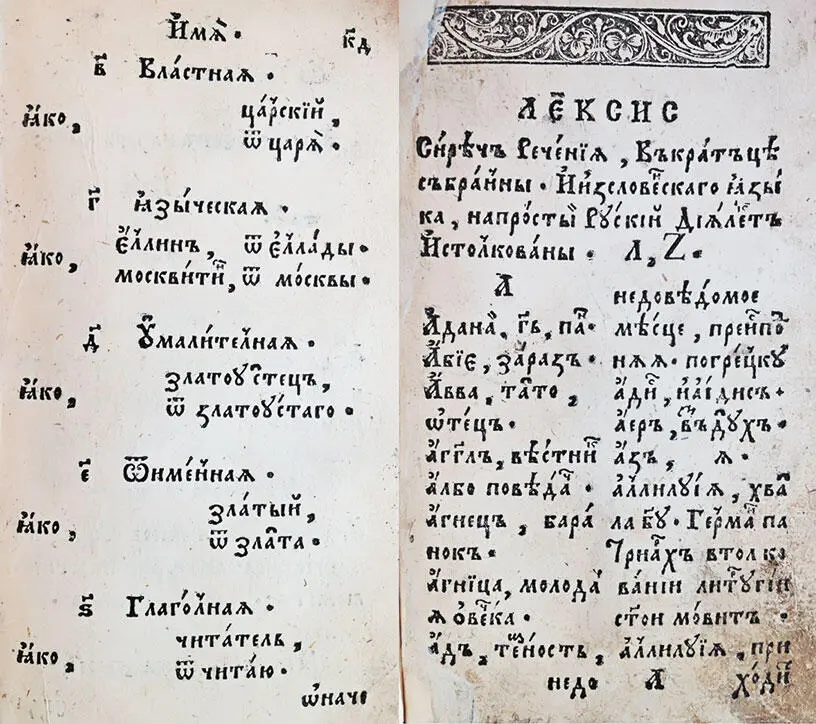 И҆мѧ̀ .
к҃д
в҃ Вла́стнаѧ .
ꙗ҆́ко, ца́рскїй,
ѿ царѧ̀ .
г҃ ꙗ҆зы́ческаѧ .
ꙗ҆́ко, є҆́ллинъ, ѿ є҆лла́ды .
москви́тинъ, ѿ мо́сквы .
д҃ Оу҆мали́телнаѧ .
ꙗ҆́ко, златоу́стецъ,
ѿ златоу́стаго .
є҃ Ѿиме́ннаѧ .
ꙗ҆́ко, зла́тый,
ѿ зла́та .
ѕ҃ Глаго́лнаѧ .
ꙗ҆́ко, чита́тель,
ѿ чита́ю .
ѡ҆наче
ЛЕ́ѮИС
Си́рѣчъ Рече́нїѧ, Въкра́тъцѣ
събра́нны . И҆и҆зслове́нскаго ꙗ҆зы́
ка, напро́стый Ру́скїй Дїѧле́ктъ
И҆столко́ваны . А, Z .
А
А҆дана̀, г҃ъ, па .
А҆́бїє, за́разъ .
А҆́вва, та́то,
ѻ҆те́цъ .
а҆́гг҃лъ, вѣ́стник
а҆́лбо повѣ́дач
а҆́гнецъ, бара́
нокъ .
а҆́гница, молода́
ѧ ѻ҆ве́чка .
а҆́дъ, те́мность,
недо
недовѣ́домое
мѣ́сце, преиспо́
нѧѧ . погре́цку
а҆́ди, и҆а҆́идисъ .
а҆е́ръ, въ́здухъ .
а҆́зъ, ꙗ .
а҆ллилу́їѧ, хва
ла бу . Ге́рман па
трїа́рхъ втолко
ва́нїи литургїи
стои мо́витъ .
а҆ллилу́їѧ, при
А хо́дит